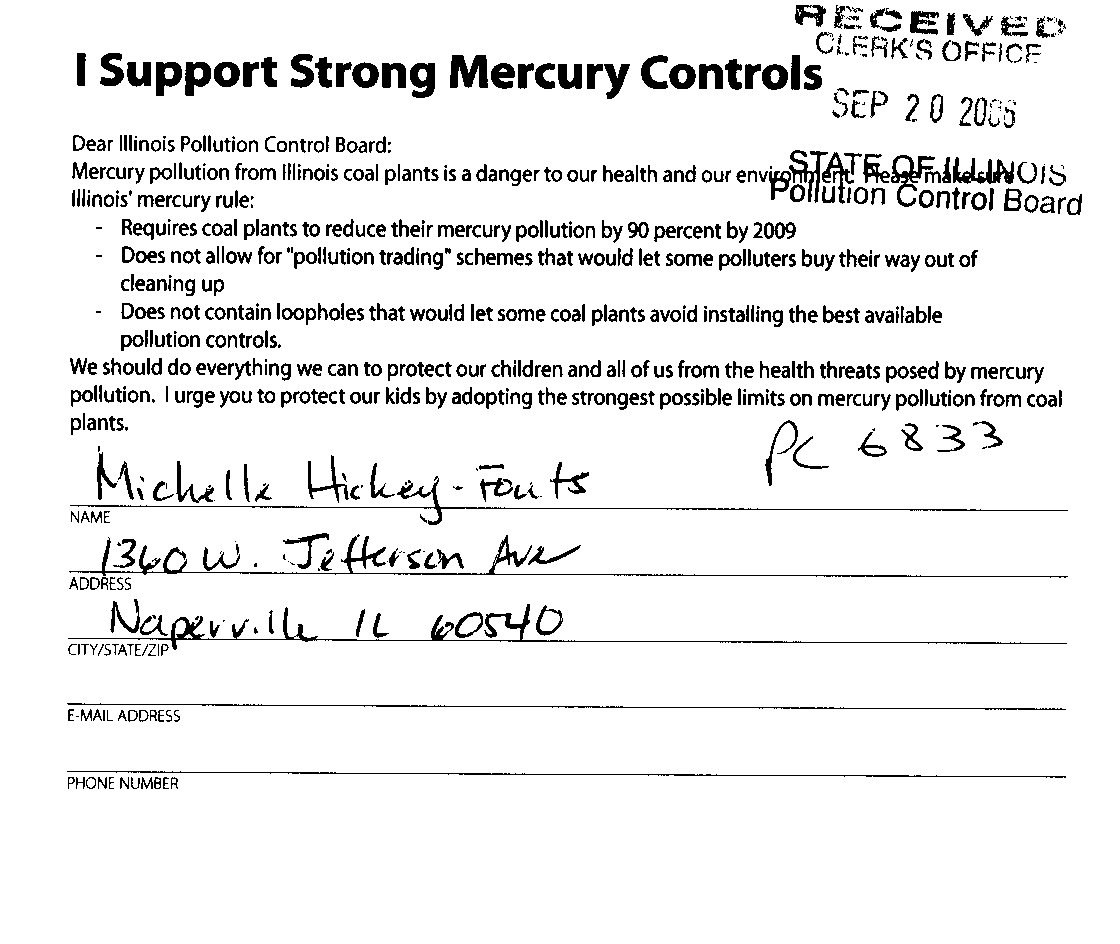 RECEIVED
CLERK'S OFFICE
I Support Strong Mercury Controls
SEP 20 2006
Dear Illinois Pollution Control Board:
STATE OF ILLINOIS
Mercury pollution from Illinois coal plants is a danger to our health and our environment. Please make sure
Pollution Control Board
Illinois' mercury rule:
- Requires coal plants to reduce their mercury pollution by 90 percent by 2009
- Does not allow for "pollution trading" schemes that would let some polluters buy their way out of
cleaning up
- Does not contain loopholes that would let some coal plants avoid installing the best available
pollution controls.
We should do everything we can to protect our children and all of us from the health threats posed by mercury
pollution. I urge you to protect our kids by adopting the strongest possible limits on mercury pollution from coal
plants.
PC 6833
Michelle Hickey-Fouts
NAME
1360 W. Jefferson Ave
ADDRESS
Naperville IL 60540
CITY/STATE/ZIP
E-MAIL ADDRESS
PHONE NUMBER